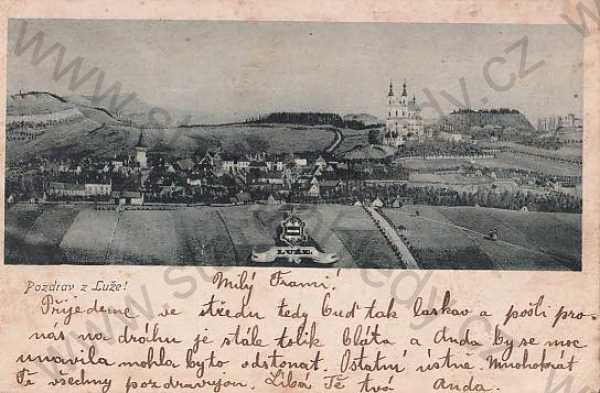 LUŽE.
Pozdrav z Luže!
Milý Frami!
Přijedeme ve středu tedy buď tak laskav a pošli pro
nás na dráhu je stále tolik bláta a Anda by se moc
unavila mohla by to odstonat. Ostatní ústně. Mnohokrát
Tě všichny pozdravujou. Líbá Tě tvá Anda.